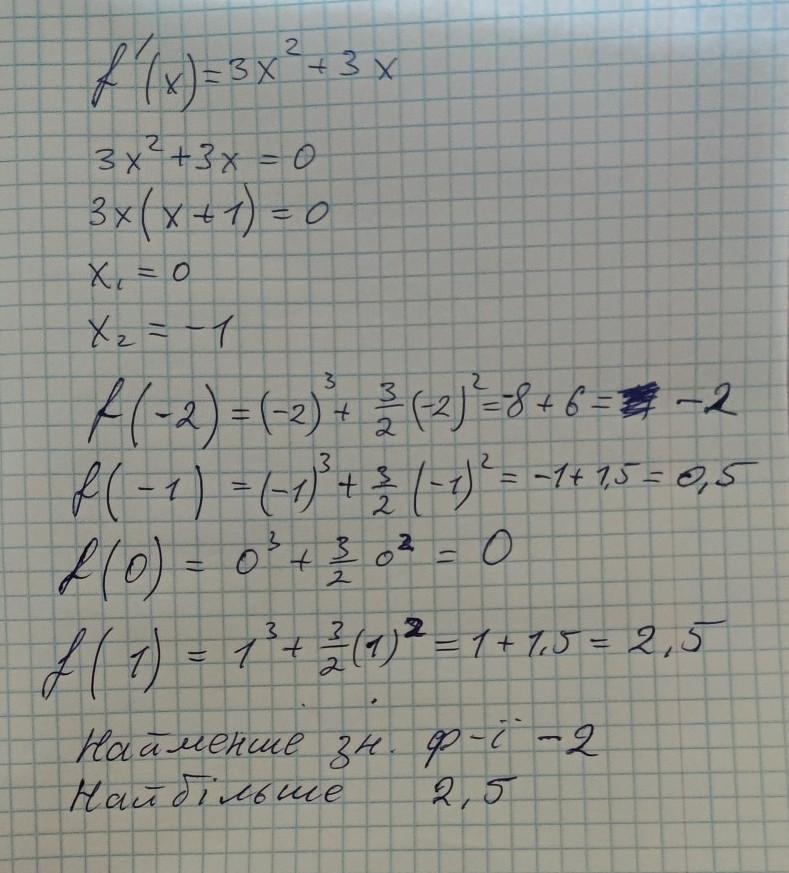 f′(x) = 3x² + 3x
3x² + 3x = 0
3x(x + 1) = 0
x₁ = 0
x₂ = -1
f(-2) = (-2)³ + 3/2 (-2)² = -8 + 6 = -2
f(-1) = (-1)³ + 3/2 (-1)² = -1 + 1,5 = 0,5
f(0) = 0³ + 3/2 0² = 0
f(1) = 1³ + 3/2 (1)² = 1 + 1,5 = 2,5
Найменше зн. ф-ії -2
Найбільше 2,5